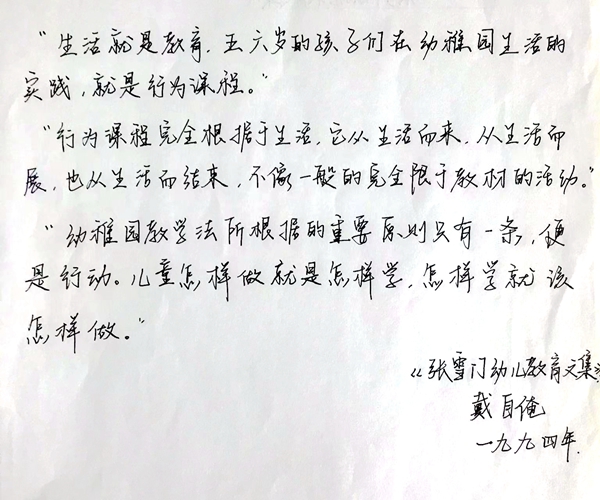 "生活就是教育，五六岁的孩子们在幼稚园生活的
实践，就是行为课程。"
"行为课程完全根据于生活，它从生活而来，从生活而
展，也从生活而结束，不像一般的完全限于教材的活动。"
"幼稚园教学法所根据的重要原则只有一条，便
是行动。儿童怎样做就是怎样学，怎样学就该
怎样做。"
《张雪门幼儿教育文集》
戴自俺
一九九四年.